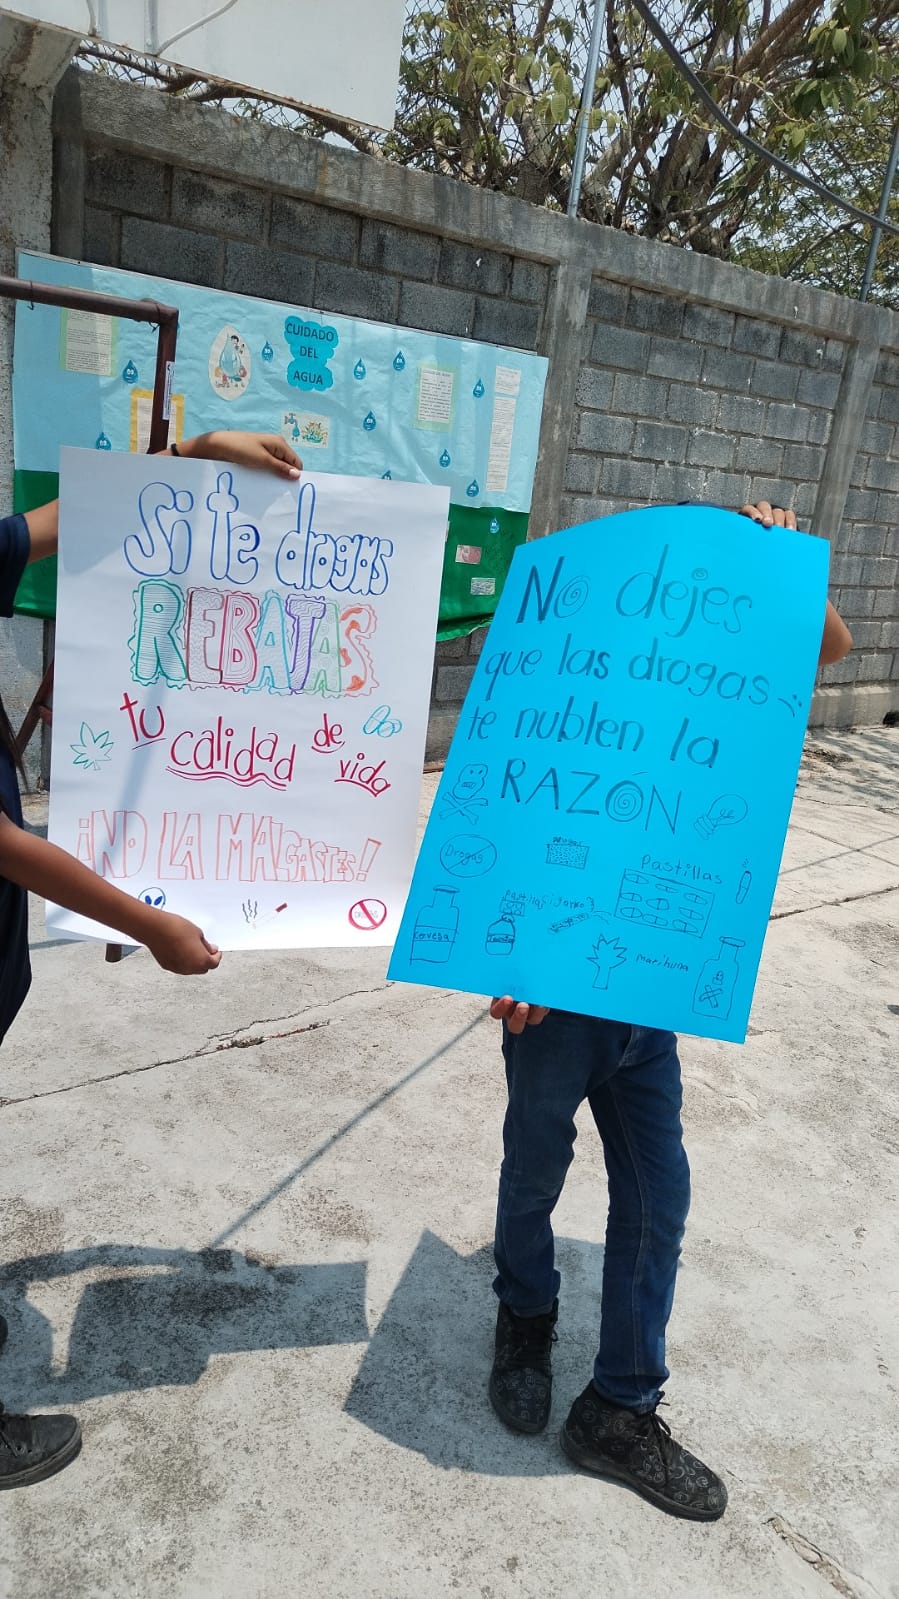 CUIDADO
DEL
AGUA
Si te drogas
REBATAS
tu
calidad
de
vida
¡NO LA MALGASTES!
No dejes
que las drogas
te nublen la
RAZÓN
Drogas
Pastillas
Pastillas
cigarro
cerveza
marihuna